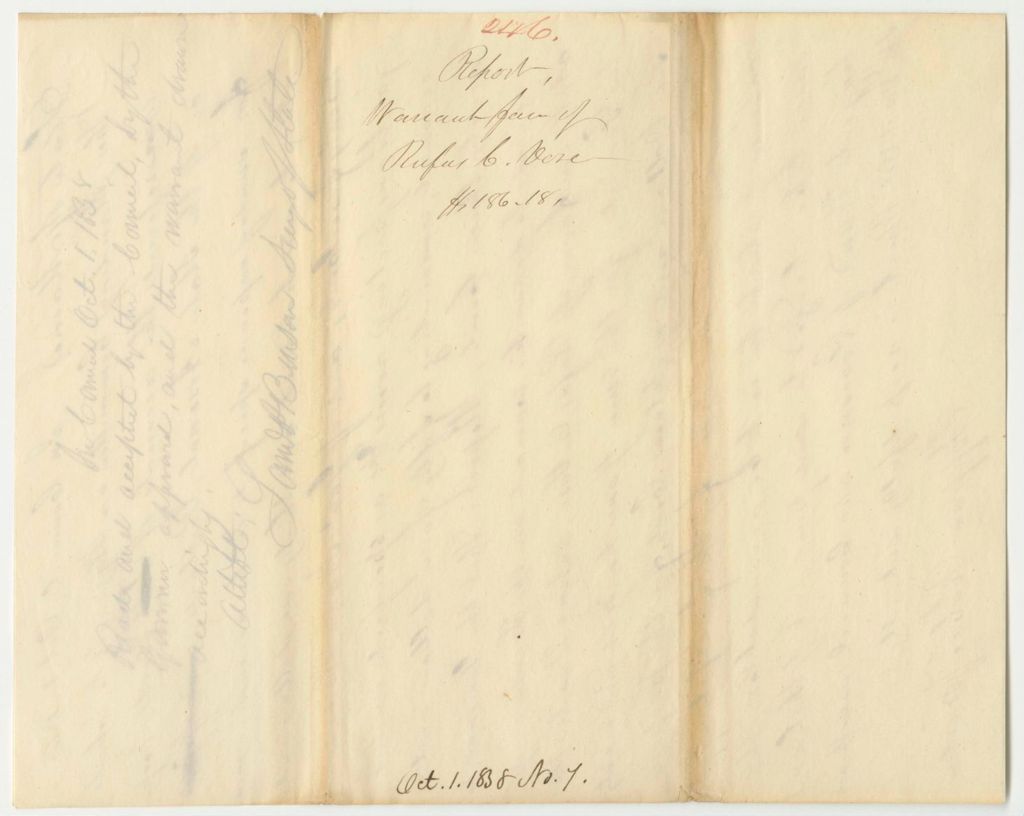 2146.
Report,
Warrant favr of
Rufus C. Vose
$186.18.
Oct. 1. 1838 No. 7.
In Council Oct. 1. 1838
Read and accepted by the Council, by the
Governor approved, and the warrant drawn
accordingly.
Attest,
Saml P Benson Secy of State